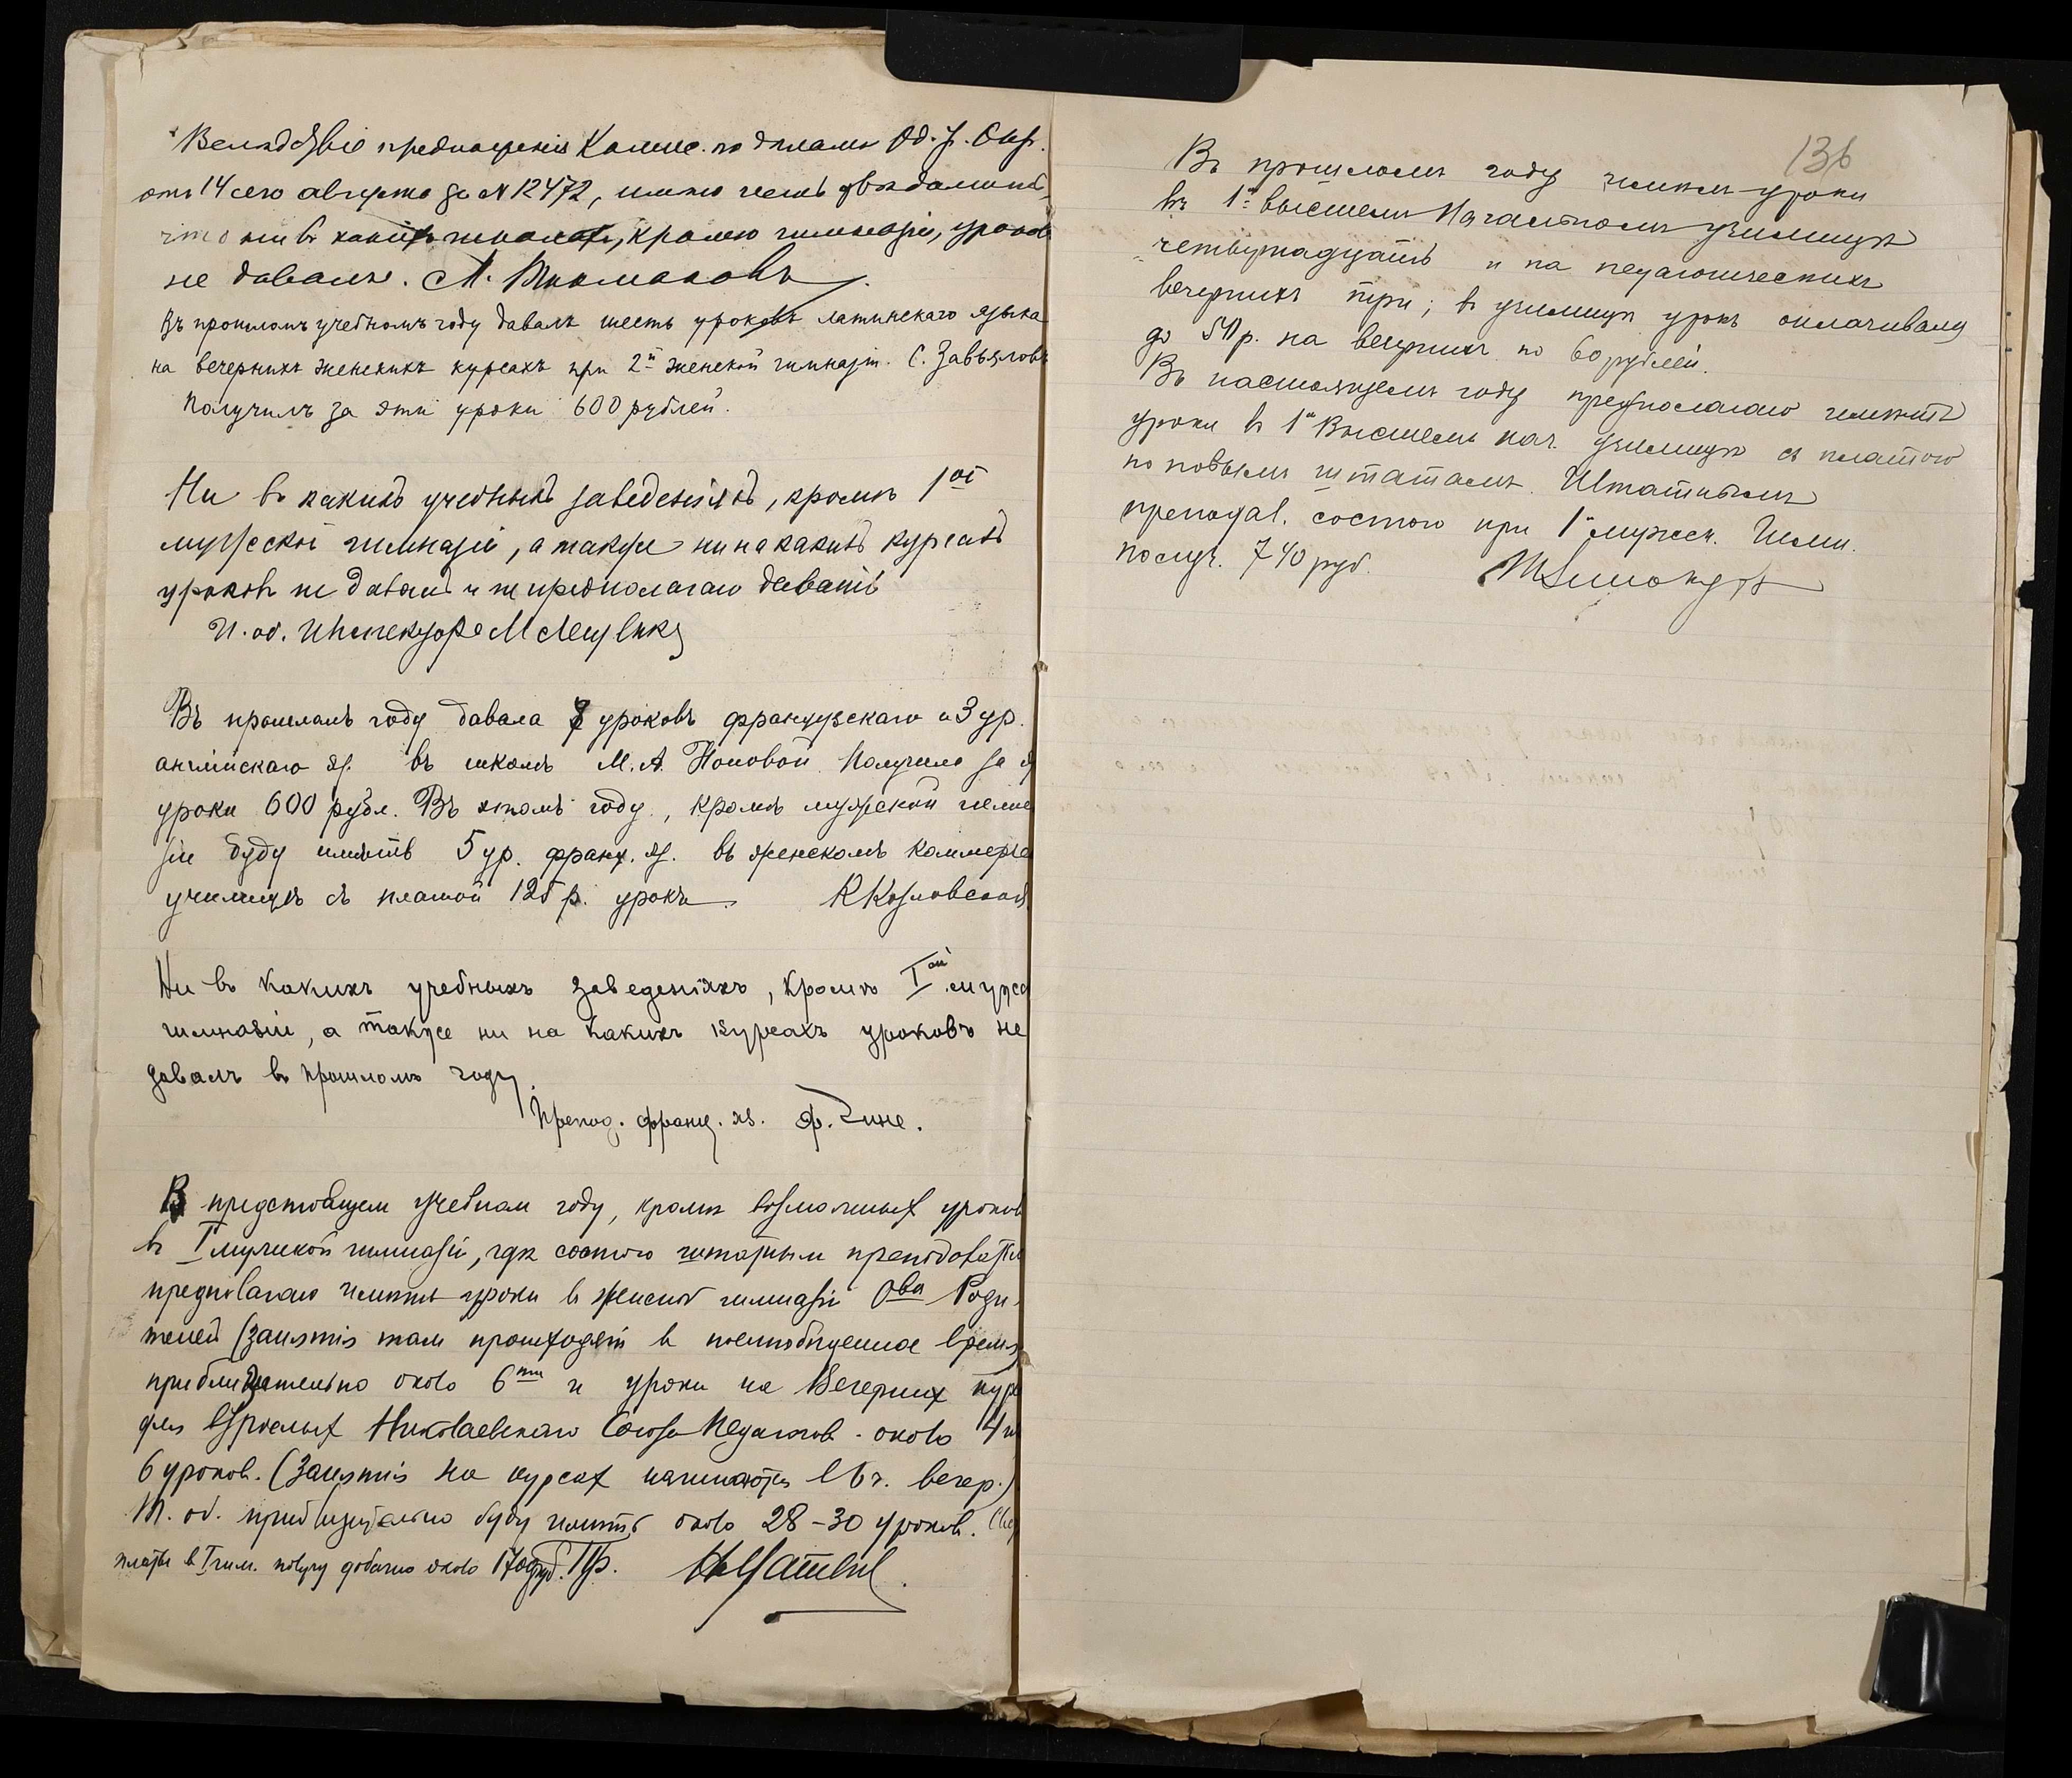 Вслѣдствіе предложенія Комис. по дѣламъ Од. у. Окр.
отъ 14 сего августа за № 12472, имѣю честь увѣдомить,
что ни въ какихъ школахъ, кромѣ гимназіи, уроковъ
не давалъ. А.
Въ прошломъ учебномъ году давалъ шесть уроковъ латинскаго языка
на вечернихъ женскихъ курсахъ при 2й женской гимназіи. С. Завьяловъ
Получилъ за эти уроки 600 рублей.
Ни въ какихъ учебныхъ заведеніяхъ, кромѣ 1ой
мужской гимназіи, а также ни на какихъ курсахъ
уроковъ не давалъ и не предполагаю давать
И. об. Инспектора
Въ прошломъ году давала 8 уроковъ французскаго и 3 ур.
англійскаго яз. въ школѣ М. А. Поповой. Получила за
уроки 600 рубл. Въ этомъ году, кромѣ мужской гимна
зіи буду имѣть 5 ур. франц. яз. въ женскомъ коммерч
училищѣ съ платой 125 р. урокъ. К Козловская
Ни въ какихъ учебныхъ заведеніяхъ, кромѣ Iой мужс
гимназіи, а также ни на какихъ курсахъ уроковъ не
давалъ въ прошломъ году.
Препод. франц. яз. Ф.
В предстоящем учебном году, кромѣ возможных уроков
в I мужской гимназіи, гдѣ состою штатным преподавател
предполагаю имѣть уроки в женской гимназіи Ова Роди-
телей (занятія там происходят в послѣобѣденное время)
приблизительно около 6ти и уроки на Вечерних кур
для взрослых Николаевскаго Союза Педагогов - около 4
6 уроков. (Занятія на курсах начинаются в 6 ч. вечер.)
Т. об. приблизительно буду имѣть около 28-30 уроков.
платы в I гим. получу добавно около
136
Въ прошломъ году имѣлъ уроки
въ 1м высшемъ Начальномъ училищѣ
четырнадцать и на педагогическихъ
вечернихъ три; въ училищѣ урокъ оплачивался
до р. на вечернихъ по 60 рублей.
Въ настоящемъ году предполагаю имѣть
уроки въ 1м Высшемъ нач. училищѣ съ платою
по новымъ штатамъ. Штатнымъ
преподав. состою при 1й мужск. Гимн.
получ. 740 руб.